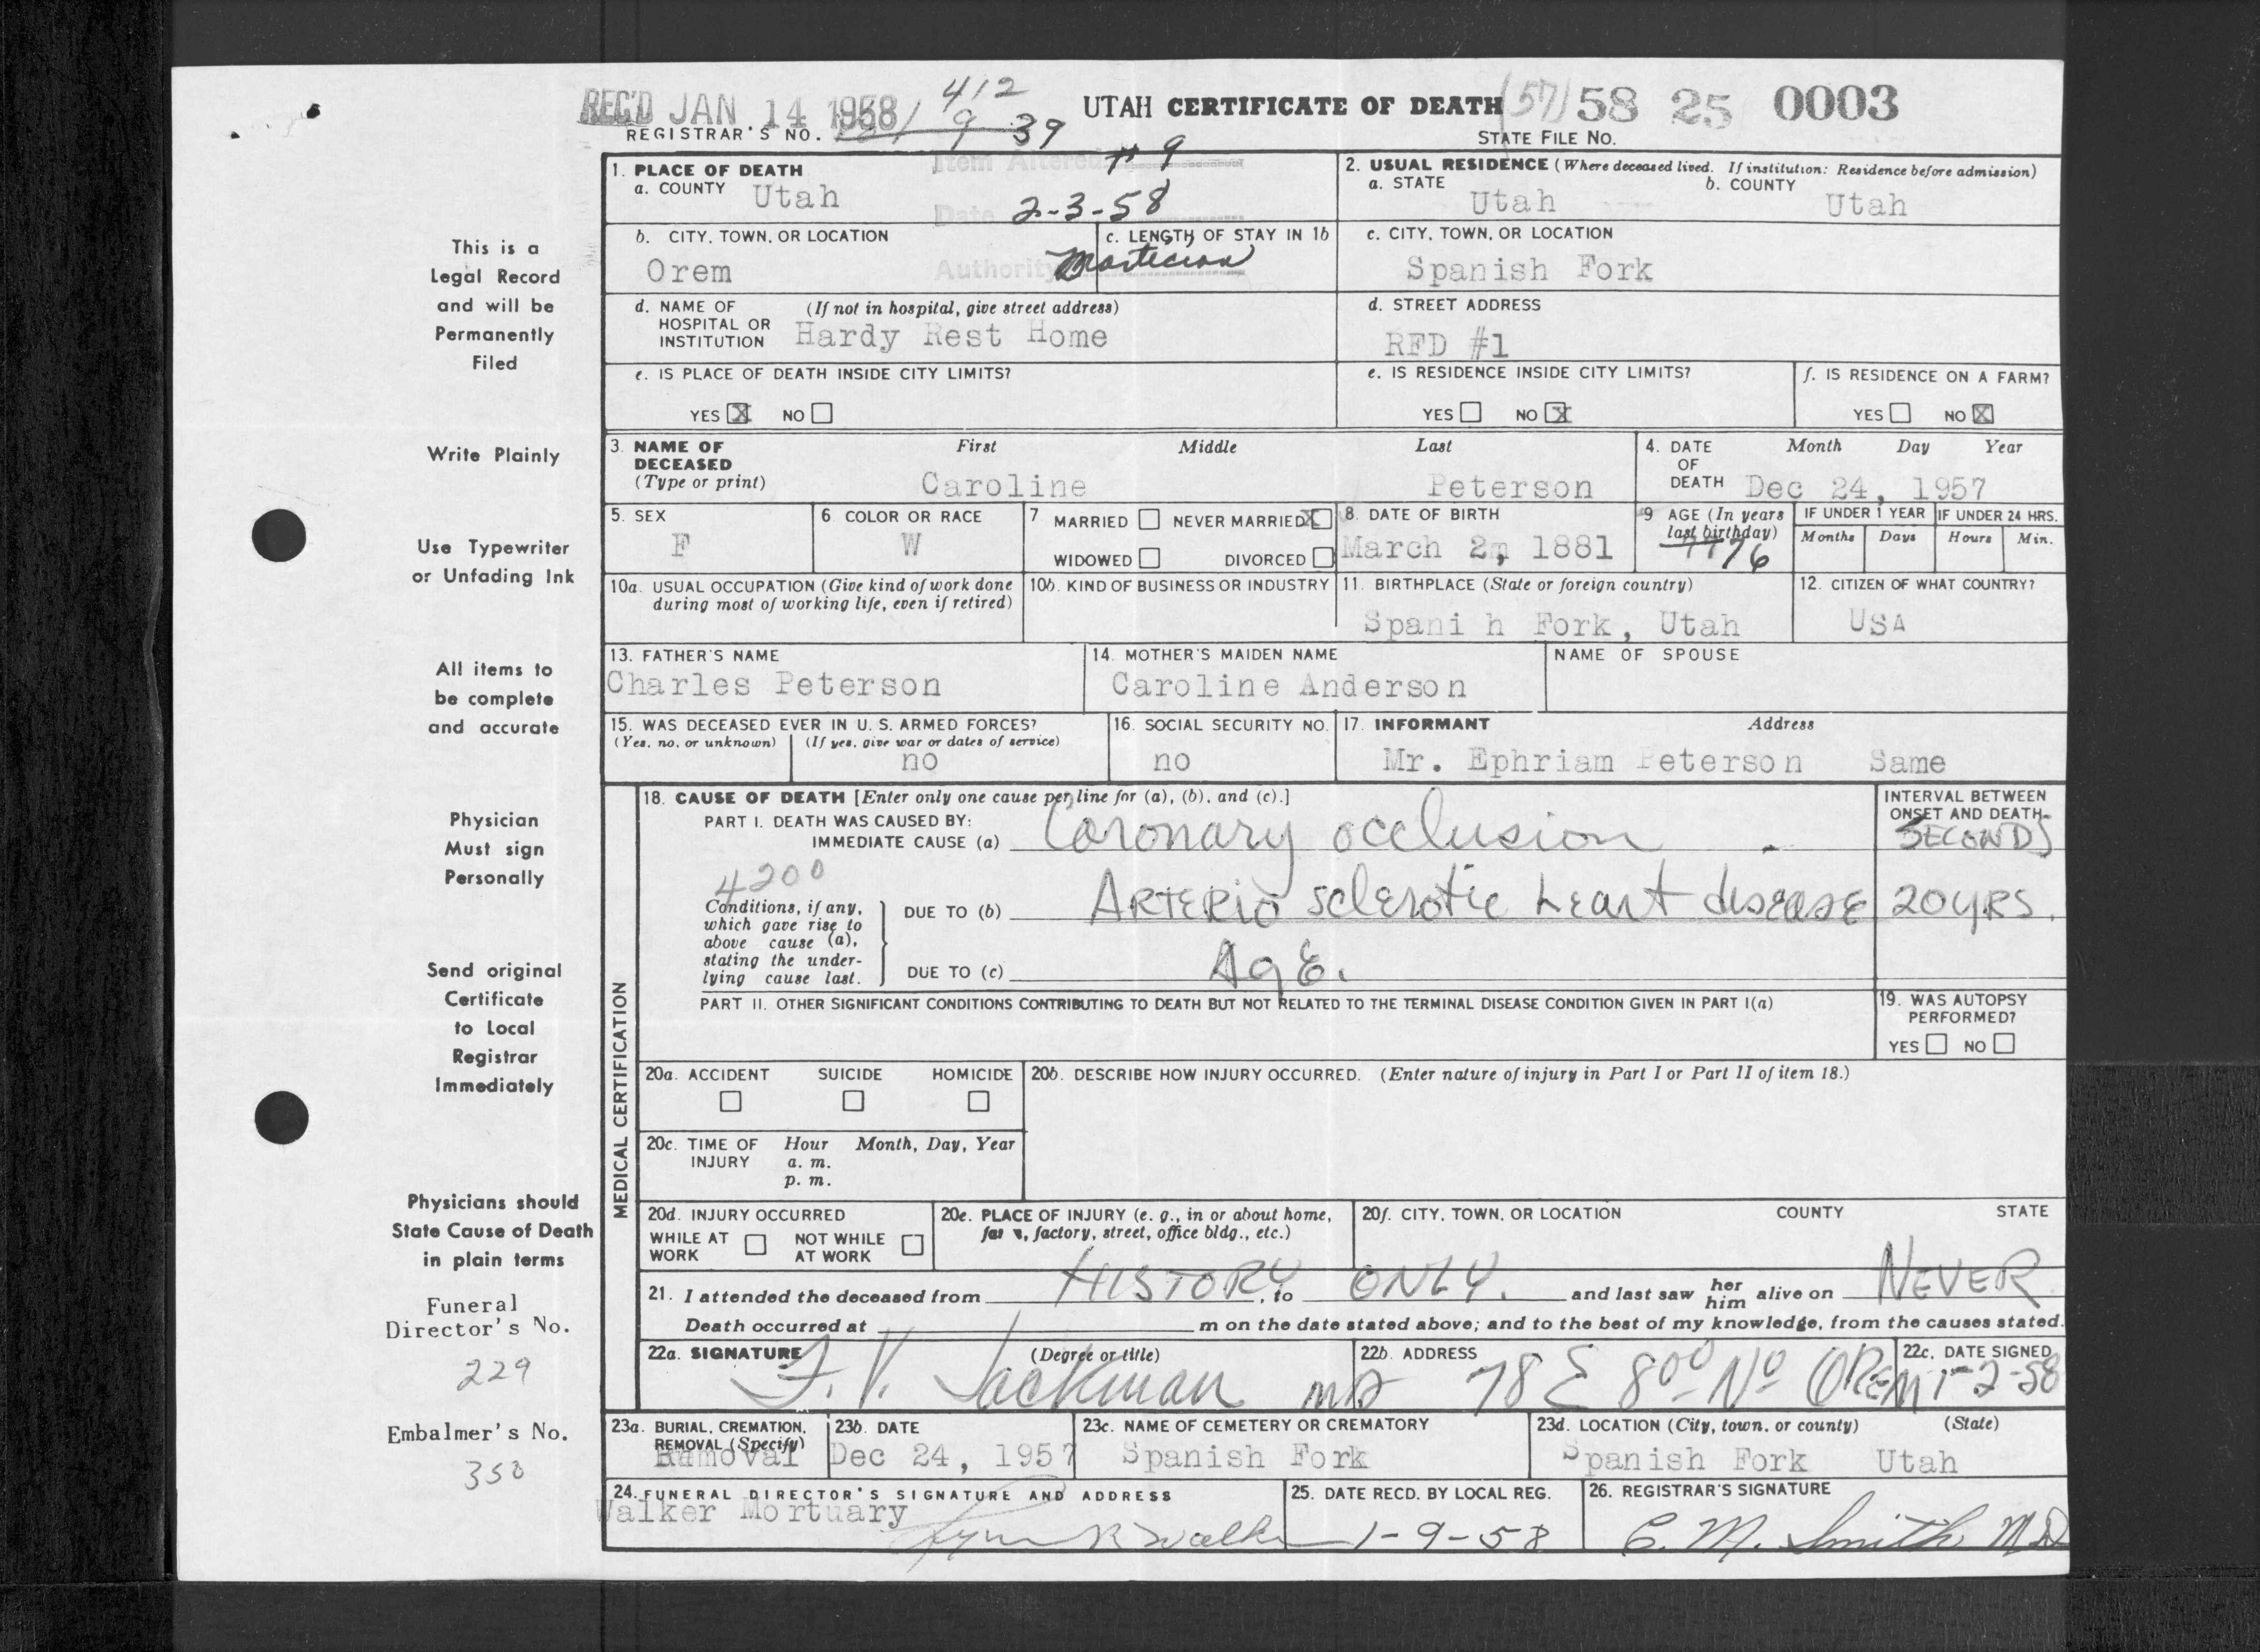 REC'D JAN 14 1958 412
REGISTRAR'S NO. 9 39
UTAH CERTIFICATE OF DEATH (57) 58 25 0003
STATE FILE NO.
Item Altered # 9
Date 2-3-58
Authority Mortician
1. PLACE OF DEATH
a. COUNTY Utah
2. USUAL RESIDENCE (Where deceased lived. If institution: Residence before admission)
a. STATE Utah b. COUNTY Utah
b. CITY, TOWN, OR LOCATION Orem
c. LENGTH OF STAY IN 1b
c. CITY, TOWN, OR LOCATION
Spanish Fork
d. NAME OF HOSPITAL OR INSTITUTION (If not in hospital, give street address)
Hardy Rest Home
d. STREET ADDRESS
RFD #1
e. IS PLACE OF DEATH INSIDE CITY LIMITS?
YES X NO
e. IS RESIDENCE INSIDE CITY LIMITS?
YES NO X
f. IS RESIDENCE ON A FARM?
YES NO X
3. NAME OF DECEASED (Type or print)
First Middle Last
Caroline Peterson
4. DATE OF DEATH Month Day Year
Dec 24, 1957
5. SEX
F
6 COLOR OR RACE
W
7 MARRIED NEVER MARRIED X
WIDOWED DIVORCED
8. DATE OF BIRTH
March 2, 1881
9 AGE (In years last birthday)
77 76
IF UNDER 1 YEAR IF UNDER 24 HRS.
Months Days Hours Min.
10a. USUAL OCCUPATION (Give kind of work done during most of working life, even if retired)
10b. KIND OF BUSINESS OR INDUSTRY
11. BIRTHPLACE (State or foreign country)
Spani h Fork, Utah
12. CITIZEN OF WHAT COUNTRY?
USA
13. FATHER'S NAME
Charles Peterson
14. MOTHER'S MAIDEN NAME
Caroline Anderson
NAME OF SPOUSE
15. WAS DECEASED EVER IN U. S. ARMED FORCES?
(Yes, no, or unknown) (If yes, give war or dates of service)
no
16. SOCIAL SECURITY NO.
no
17. INFORMANT Address
Mr. Ephriam Peterson Same
MEDICAL CERTIFICATION
18. CAUSE OF DEATH [Enter only one cause per line for (a), (b), and (c).]
PART I. DEATH WAS CAUSED BY:
IMMEDIATE CAUSE (a) Coronary occlusion
INTERVAL BETWEEN ONSET AND DEATH
SECONDS
4200
Conditions, if any, which gave rise to above cause (a), stating the underlying cause last.
DUE TO (b) ARTERIO sclerotic heart disease 20 YRS.
DUE TO (c) Age.
PART II. OTHER SIGNIFICANT CONDITIONS CONTRIBUTING TO DEATH BUT NOT RELATED TO THE TERMINAL DISEASE CONDITION GIVEN IN PART I(a)
19. WAS AUTOPSY PERFORMED?
YES NO
20a. ACCIDENT SUICIDE HOMICIDE
20b. DESCRIBE HOW INJURY OCCURRED. (Enter nature of injury in Part I or Part II of item 18.)
20c. TIME OF INJURY Hour Month, Day, Year
a. m.
p. m.
20d. INJURY OCCURRED
WHILE AT WORK NOT WHILE AT WORK
20e. PLACE OF INJURY (e. g., in or about home, farm, factory, street, office bldg., etc.)
20f. CITY, TOWN, OR LOCATION COUNTY STATE
21. I attended the deceased from HISTORY, to ONLY. and last saw her him alive on NEVER
Death occurred at m on the date stated above; and to the best of my knowledge, from the causes stated.
22a. SIGNATURE (Degree or title)
F. V. Jackman MD
22b. ADDRESS
78 E 800 No OREM
22c. DATE SIGNED
1-2-58
23a. BURIAL, CREMATION, REMOVAL (Specify)
Removal
23b. DATE
Dec 24, 1957
23c. NAME OF CEMETERY OR CREMATORY
Spanish Fork
23d. LOCATION (City, town, or county) (State)
Spanish Fork Utah
24. FUNERAL DIRECTOR'S SIGNATURE AND ADDRESS
Walker Mortuary
25. DATE RECD. BY LOCAL REG.
1-9-58
26. REGISTRAR'S SIGNATURE
C. M. Smith MD
This is a
Legal Record
and will be
Permanently
Filed
Write Plainly
Use Typewriter
or Unfading Ink
All items to
be complete
and accurate
Physician
Must sign
Personally
Send original
Certificate
to Local
Registrar
Immediately
Physicians should
State Cause of Death
in plain terms
Funeral
Director's No.
229
Embalmer's No.
350